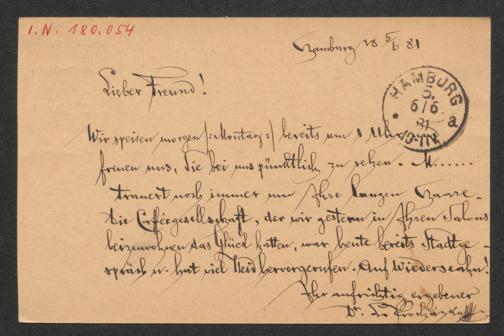 I.N. 180.054
Hamburg 18 5/6 81
Lieber Freund!
HAMBURG
5.
6/6
81
a
10-11N.
Wir speisen morgen /:Montag:/ bereits um 1 Uhr
freuen uns, Sie bei uns pünktlich zu sehen. M......
trauert noch immer um Ihre langen Haare.
Die Cafférgesellschaft, der wir gestern in Ihren Salons
beizuwohnen das Glück hatten, war heute bereits Stadtge-
spräch u. hat viel Neid hervorgerufen. Auf Wiedersehn!
Ihr aufrichtig ergebener
Dr.